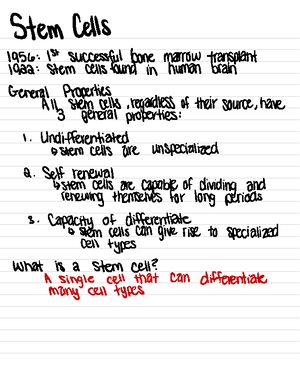 Stem Cells
1956: 1st successful bone marrow transplant
1992: Stem cells found in human brain
General Properties
All stem cells, regardless of their source, have
3 general properties:
1. Undifferentiated
↳ stem cells are unspecialized
2. Self renewal
↳ stem cells are capable of dividing and
renewing themselves for long periods
3. Capacity of differentiate
↳ stem cells can give rise to specialized
cell types
What is a stem cell?
A single cell that can differentiate
many cell types